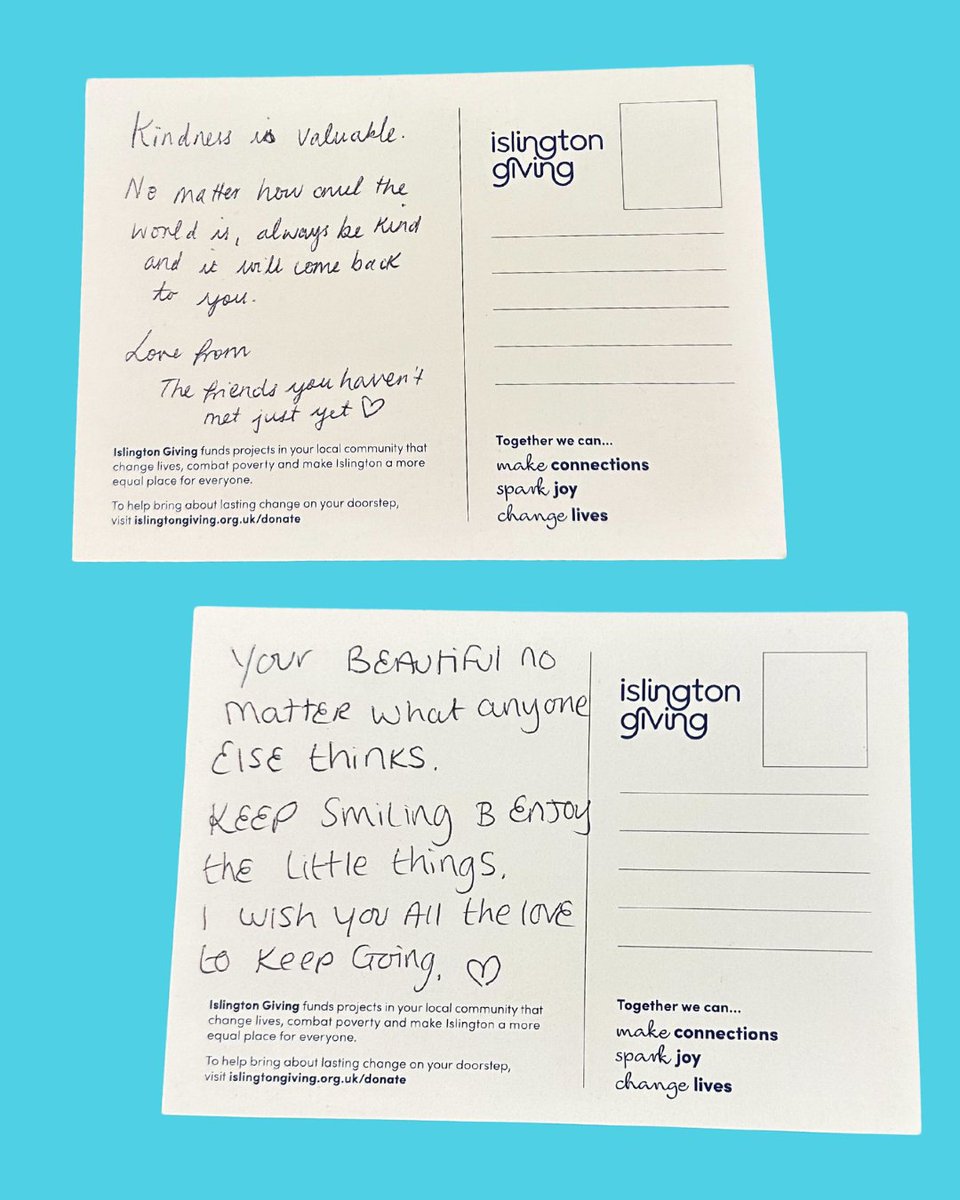 Kindness is valuable.
No matter how cruel the
world is, always be kind
and it will come back
to you.
Love from
The friends you haven't
met just yet ♡
Islington Giving funds projects in your local community that
change lives, combat poverty and make Islington a more
equal place for everyone.
To help bring about lasting change on your doorstep,
visit islingtongiving.org.uk/donate
islington
giving
Together we can...
make connections
spark joy
change lives
Your BEAUTiFUl no
matter what anyone
Else thinks.
KEEP Smiling B Enjoy
the little things.
I wish you All the love
to keep Going. ♡
Islington Giving funds projects in your local community that
change lives, combat poverty and make Islington a more
equal place for everyone.
To help bring about lasting change on your doorstep,
visit islingtongiving.org.uk/donate
islington
giving
Together we can...
make connections
spark joy
change lives